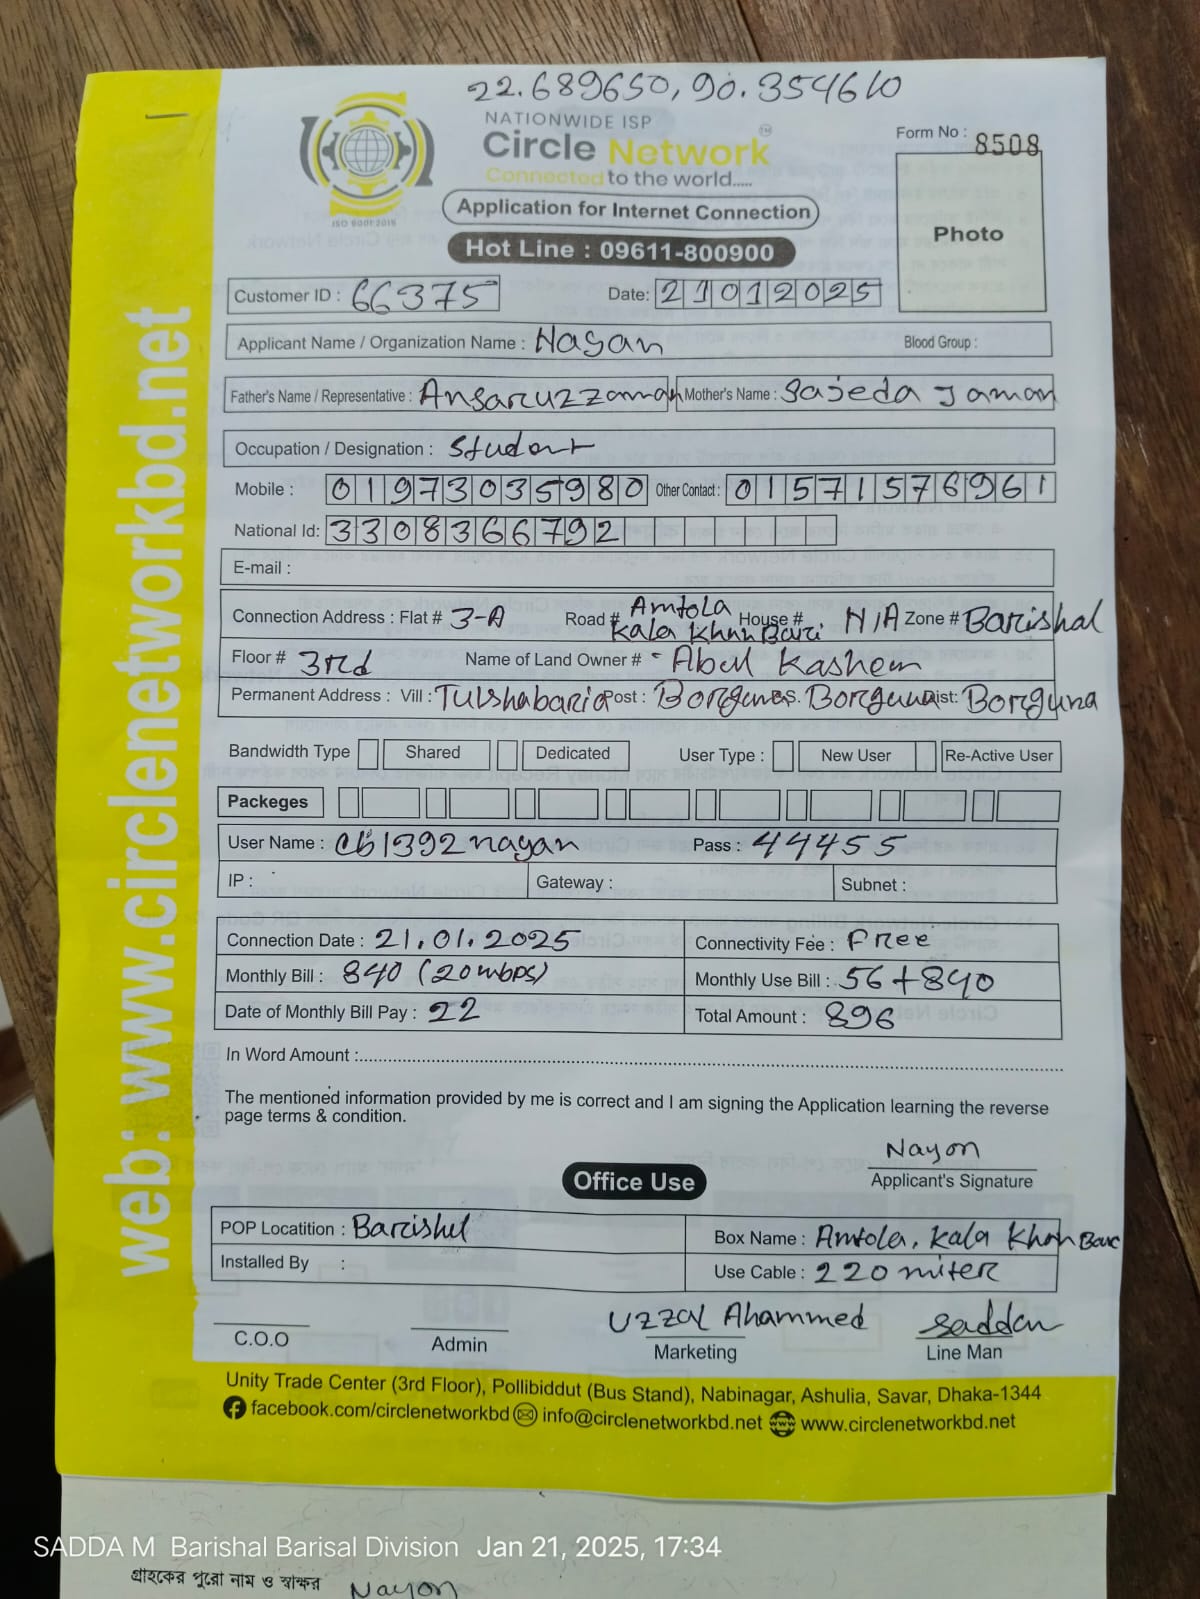 22.689650, 90.354610
NATIONWIDE ISP
Circle Network
TM
Connected to the world.....
ISO 9001:2015
Form No : 8508
Application for Internet Connection
Photo
Hot Line : 09611-800900
Customer ID : 66375 Date: 21012025
Applicant Name / Organization Name : Nayan Blood Group :
Father's Name / Representative : Ansaruzzaman Mother's Name : Sajeda Jaman
Occupation / Designation : Student
Mobile : 01973035980 Other Contact : 01571576961
National Id: 3308366792
E-mail :
Connection Address : Flat # 3-A Road # Amtola Kala Khan Bari House # N/A Zone # Barishal
Floor # 3rd Name of Land Owner # - Abul Kashem
Permanent Address : Vill : Tulshabaria Post : Borguna P.S. Borguna Dist: Borguna
Bandwidth Type Shared Dedicated User Type : New User Re-Active User
Packeges
User Name : cb1392nayan Pass : 44455
IP : Gateway : Subnet :
Connection Date : 21.01.2025 Connectivity Fee : Free
Monthly Bill : 840 (20mbps) Monthly Use Bill : 56+840
Date of Monthly Bill Pay : 22 Total Amount : 896
In Word Amount :
The mentioned information provided by me is correct and I am signing the Application learning the reverse
page terms & condition.
Nayon
Applicant's Signature
Office Use
POP Locatition : Barishal Box Name : Amtola, Kala Khan Bari
Installed By : Use Cable : 220 miter
Uzzal Ahammed Saddam
C.O.O Admin Marketing Line Man
Unity Trade Center (3rd Floor), Pollibiddut (Bus Stand), Nabinagar, Ashulia, Savar, Dhaka-1344
facebook.com/circlenetworkbd info@circlenetworkbd.net www.circlenetworkbd.net
web: www.circlenetworkbd.net
SADDA M Barishal Barisal Division Jan 21, 2025, 17:34
গ্রাহকের পুরো নাম ও স্বাক্ষর Nayon